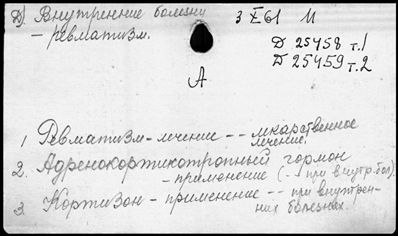 Д) Внутренние болезни
– ревматизм.
3 X 61 И
Д 25458 т.1
Д 25459 т.2
А
1. Ревматизм – лечение -- лекарственное
лечение.
2. Адренокортикотропный гормон
– применение (-- при внутр. бол.)
3. Кортизон – применение -- при внутрен-
них болезнях.